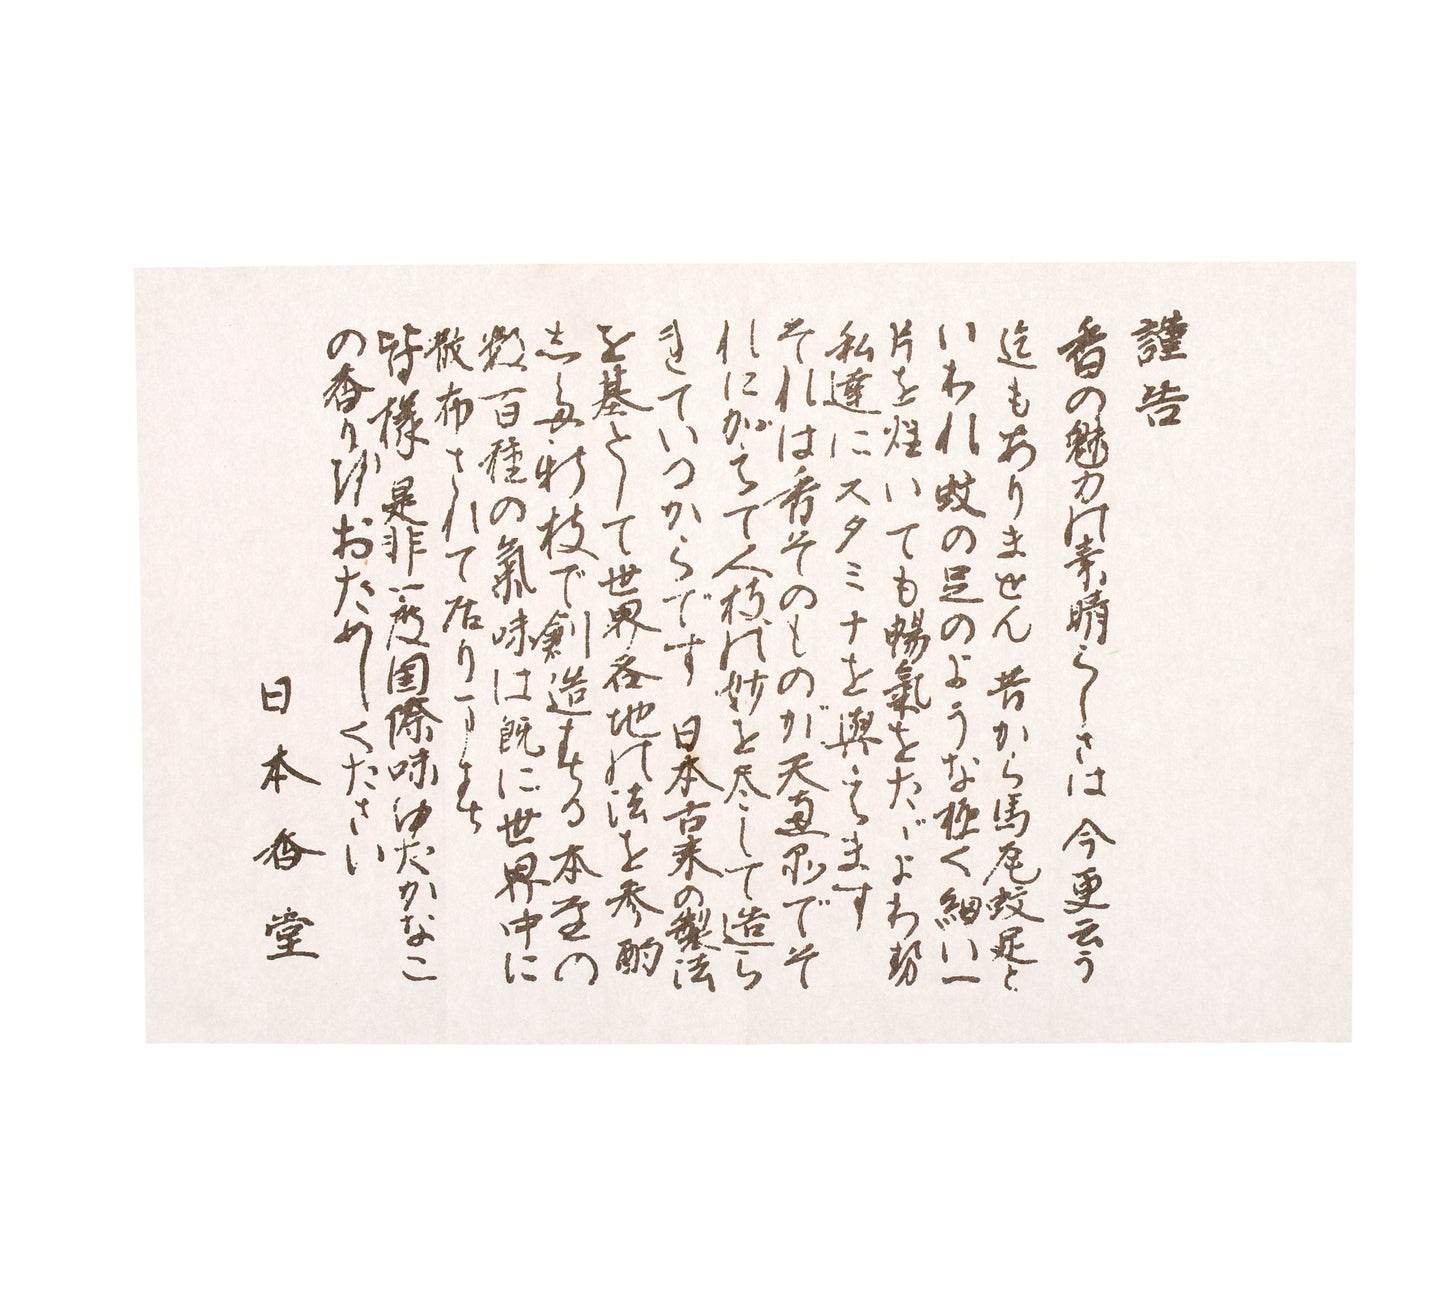 謹告
香の魅力は素晴らしさは 今更云う
迄もありません 昔から馬尾蚊足と
いわれ蚊の足のような極く細い一
片を炷いても暢氣をたゞよわ勢
私達にスタミナを與えます
それは香そのものが天与でそ
れにかてて人技は妙を尽して造ら
きているからです 日本古来の製法
を基として世界各地の法を参酌
した新技で創造する本堂の
数百種の氣味は既に世界中に
散布されて居ります
皆様 是非一度国際味ゆたかなこ
の香りをおためしください
日本香堂